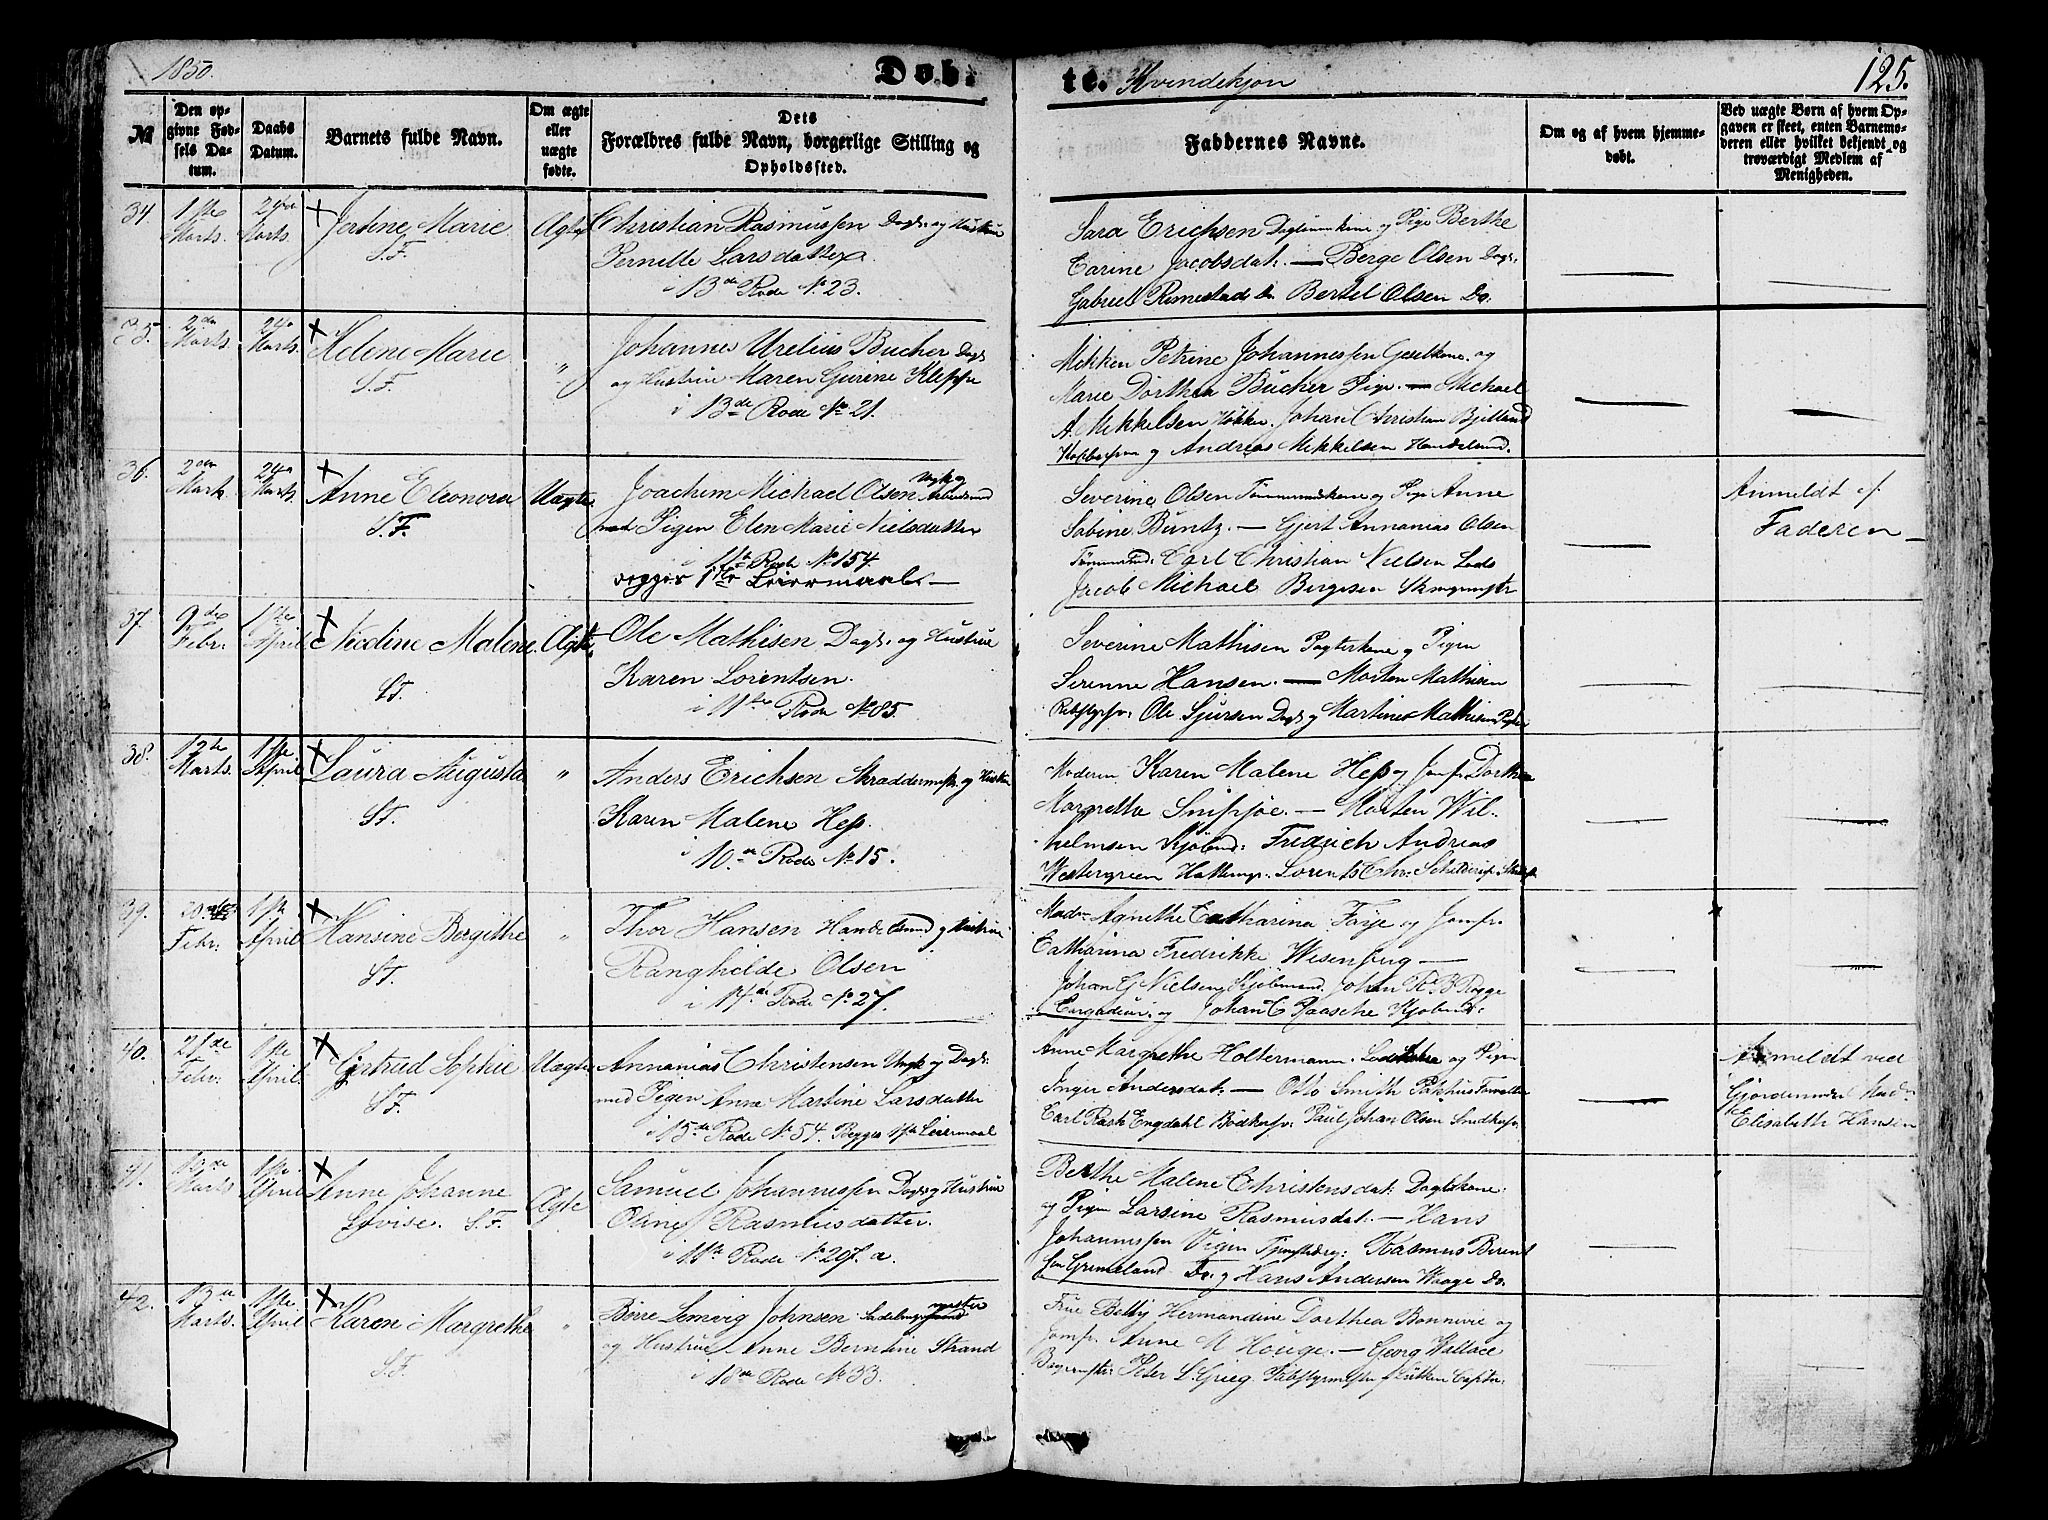 1850.
Døb-
te. Kvindekjøn
125.
№
Den op-
givne Fød-
sels Da-
tum.
Daabs
Datum.
Barnets fulde Navn.
Om ægte
eller
uægte
fødte.
Dets
Forældres fulde Navn, borgerlige Stilling og
Opholdssted.
Faddernes Navne.
Om og af hvem hjemme-
døbt.
Ved uægte Børn af hvem Op-
gaven er skeet, enten Barnemo-
deren eller hvilket bekjendt og
troværdigt Medlem af
Menigheden.
34. 1ste Marts. 24de Marts. Jorine Marie Ægte Christian Rasmussen Dags. og Hustrue
S.F. Pernille Larsdatter
i 13de Rode No 23.
Sara Erichsen og Pige Berthe
Carine Jacobsdat: — Berge Olsen Dags.
Gabriel Rimestad Do Bertel Olsen Do.
35. 2den Marts. 24de Marts. Helene Marie " Johannes Urelius Bucher Dags
S.F. og Hustrue Maren Gurine Kleppe
i 13de Rode No 21.
Mikken Petrine Johannessen og
Marie Dorthea Bucher Pige. — Michael
A. Mikkelsen Johan Christian Bjelland
og Andreas Mikkelsen Handelsmd.
36. 2den Marts. 24de Marts. Anne Eleonora Uægte Joachim Michael Olsen Ungk. og Arbeidsmd
S.F. med Pigen Elen Marie Nielsdatter
i 11te Rode No 154
begges 1ste Leiermaal. —
Severine Olsen Tømmermdskone og Pige Anne
Sabine Buntz. — Gjert Annanias Olsen
Tømmermd: Carl Christian Nielsen Lods
Jacob Michael Bergesen
Anmeldt af
Faderen —
37. 9de Febr. 1ste April Nicoline Malene Ægte Ole Mathisen Dags. og Hustrue
S.F. Karen Lorentsen.
i 11te Rode No 85.
Severine Mathisen og Pigen
Serenne Hansen. — Morten Mathisen
Ole Sjursen Dags og Martines Mathisen
38. 12te Marts. 1ste April Laura Augusta " Anders Erichsen Skræddermstr. og Hustrue
S.F. Karen Malene Hess.
i 10de Rode No 15.
Moderen Karen Malene Hess og Jomfr. Dorthea
Margrethe Snipsøe. — Morten Wil-
helmsen Kjøbmd: Fredrich Andreas
Westergreen Lorents Chr:
39. 20de Febr: 1ste April Hansine Bergithe " Thor Hansen Handelsmd og Hustrue
S.F. Ranghilde Olsen
i 14de Rode No 27.
Mad: Agnethe Catharina Faye og Jomfr.
Catharina Fredrikke Wesenberg —
Johan G Nielsen Kjøbmand. Johan R. B Rogge
og Johan C Raasche Kjøbmd:
40. 21de Febr: 1ste April Gjertrud Sophie Uægte Annanias Christensen Ungk og Dags:
S.F. med Pigen Anne Martine Larsdatter
i 15de Rode No 54. Begges 1ste Leiermaal
Anne Margrethe Holtermann. og Pigen
Inger Andersdat: — Otto Smith Pakhusforvalter
Carl Rask Engdahl Bødkersv: Paul Johan Olsen Snedkersv:
Anmeldt ved
Gjordemoder Mad:
Elisabeth Hansen
41. 13de Marts 1ste April Anne Johanne Ægte Samuel Johannessen Dags og Hustrue
Lovise. S.F. Oline Rasmusdatter.
i 11te Rode No 207. a.
Berthe Malene Christensdat: Dagskone:
og Pigen Larsine Rasmusdat: — Hans
Johannessen Vigen Rasmus Berent
sen Grimeland Do. og Hans Andersen Waage Do.
42. 13de Marts. 1ste April Karen Margrethe " Børre Lemvig Johnsen Sadelmagermester
S.F. og Hustrue Anne Berntine Strand
i 18de Rode No 33.
Frue Betty Hermandine Dorthea Bonnevie og
Jomfr. Anne M Houge. — Georg Wallace
Bagermstr: Peter L. Grieg